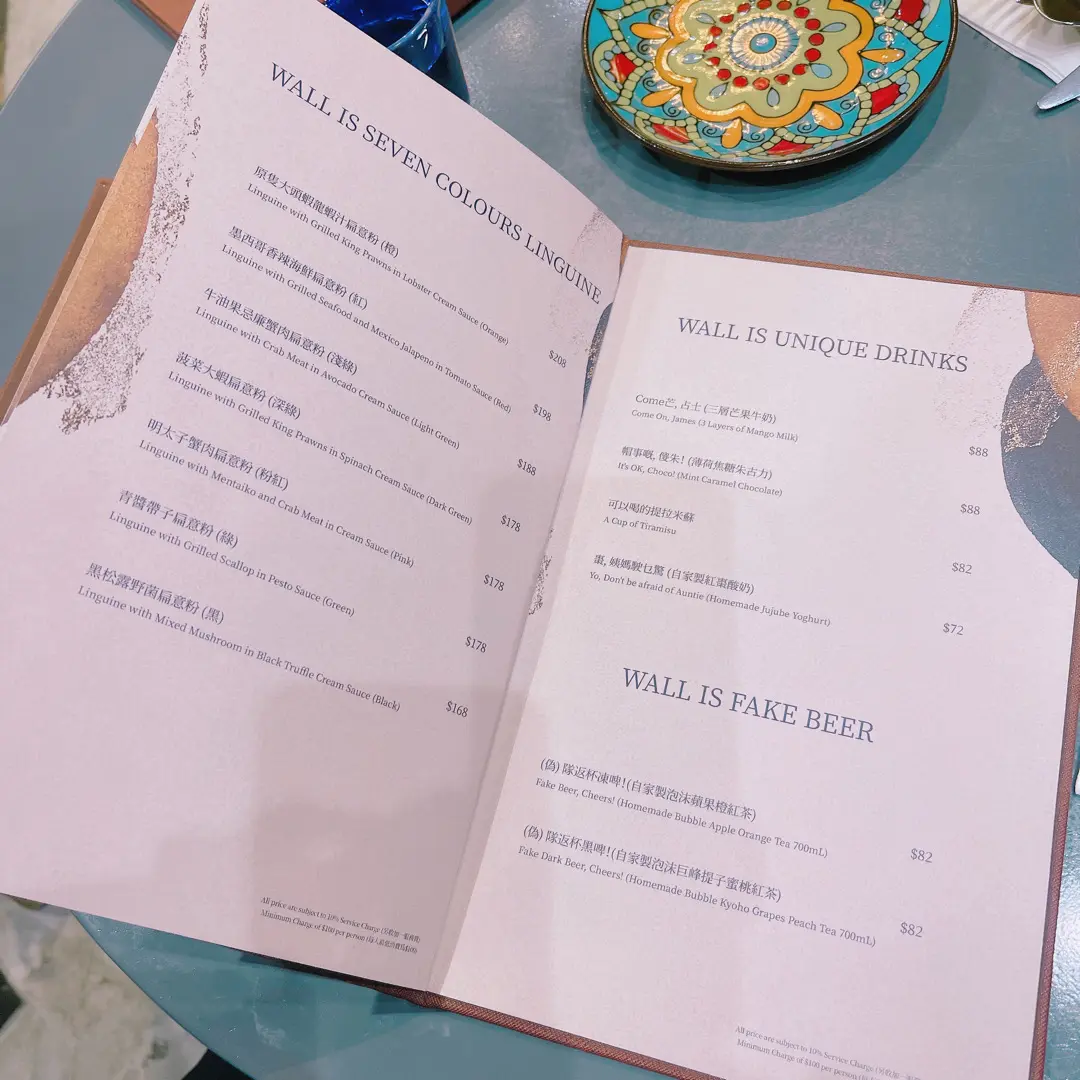 WALL IS SEVEN COLOURS LINGUINE
原隻大頭蝦龍蝦汁扁意粉 (橙)
Linguine with Grilled King Prawns in Lobster Cream Sauce (Orange)
$208
墨西哥香辣海鮮扁意粉 (紅)
Linguine with Grilled Seafood and Mexico Jalapeno in Tomato Sauce (Red)
$198
牛油果忌廉蟹肉扁意粉 (淺綠)
Linguine with Crab Meat in Avocado Cream Sauce (Light Green)
$188
菠菜大蝦扁意粉 (深綠)
Linguine with Grilled King Prawns in Spinach Cream Sauce (Dark Green)
$178
明太子蟹肉扁意粉 (粉紅)
Linguine with Mentaiko and Crab Meat in Cream Sauce (Pink)
$178
青醬帶子扁意粉 (綠)
Linguine with Grilled Scallop in Pesto Sauce (Green)
$178
黑松露野菌扁意粉 (黑)
Linguine with Mixed Mushroom in Black Truffle Cream Sauce (Black)
$168
All price are subject to 10% Service Charge
Minimum Charge of $100 per person
WALL IS UNIQUE DRINKS
Come芒, 占士 (三層芒果牛奶)
Come On, James (3 Layers of Mango Milk)
$88
帽事嘅, 傻朱! (薄荷焦糖朱古力)
It's OK, Choco! (Mint Caramel Chocolate)
$88
可以喝的提拉米蘇
A Cup of Tiramisu
$82
棗, 姨媽駛乜驚 (自家製紅棗酸奶)
Yo, Don't be afraid of Auntie (Homemade Jujube Yoghurt)
$72
WALL IS FAKE BEER
(偽) 隊返杯凍啤!(自家製泡沫蘋果橙紅茶)
Fake Beer, Cheers! (Homemade Bubble Apple Orange Tea 700mL)
$82
(偽) 隊返杯黑啤!(自家製泡沫巨峰提子蜜桃紅茶)
Fake Dark Beer, Cheers! (Homemade Bubble Kyoho Grapes Peach Tea 700mL)
$82
All price are subject to 10% Service Charge
Minimum Charge of $100 per person